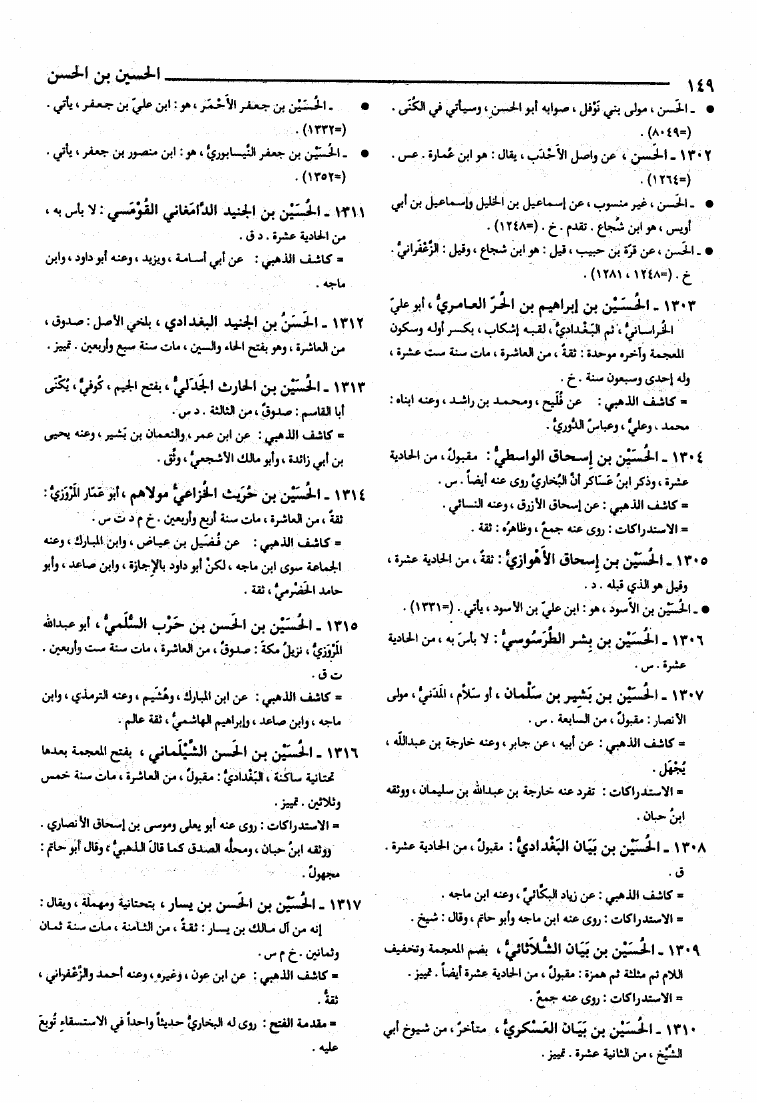 ١٤٩ الحسين بن الحسن
● ـ الحَسن ، مولى بني نَوْفل ، صوابه أبو الحسن ، وسيأتي في الكُنَى .
(=٨٠٤٩) .
١٣٠٢ ـ الحَسن ، عن واصل الأحْدَب ، يقال : هو ابن عُمارة . عس .
(=١٢٦٤) .
● ـ الحَسن ، غير منسوب ، عن إسماعيل بن الخليل وإسماعيل بن أبي
أويس ، هو ابن شُجاع . تقدم . خ . (=١٢٤٨) .
● ـ الحَسن ، عن قرّة بن حبيب ، قيل : هو ابن شجاع ، وقيل : الزَّعْفرانيُّ .
خ . (=١٢٤٨ ، ١٢٨١) .
١٣٠٣ ـ الحُسَيْن بن إبراهيم بن الحُرّ العامريُّ ، أبو عليّ
الخُراسانيُّ ، ثم البَغْداديُّ ، لقبه إشكاب ، بكسر أوله وسكون
المعجمة وآخره موحدة : ثقةٌ ، من العاشرة ، مات سنة ست عشرة ،
وله إحدى وسبعون سنة . خ .
= كاشف الذهبي : عن فُلَيح ، ومحمد بن راشد ، وعنه ابناه :
محمد ، وعليٌّ ، وعباسٌ الدُّوريُّ .
١٣٠٤ ـ الحُسَيْن بن إسحاق الواسطيُّ : مقبولٌ ، من الحادية
عشرة ، وذكر ابنُ عَسَاكر أنَّ البُخاريَّ روى عنه أيضاً . س .
= كاشف الذهبي : عن إسحاق الأزرق ، وعنه النسائي .
= الاستدراكات : روى عنه جمعٌ ، وظاهرُه : ثقة .
١٣٠٥ ـ الحُسَيْن بن إسحاق الأهْوازيُّ : ثقةٌ ، من الحادية عشرة ،
وقيل هو الذي قبله . د .
● ـ الحُسَيْن بن الأسود ، هو : ابن عليّ بن الأسود ، يأتي . (=١٣٣١) .
١٣٠٦ ـ الحُسَيْن بن بشر الطَّرَسُوسيُّ : لا بأسَ به ، من الحادية
عشرة . س .
١٣٠٧ ـ الحُسَيْن بن بَشير بن سَلْمان ، أو سَلاَم ، المَدَنيُّ ، مولى
الأنصار : مقبولٌ ، من السابعة . س .
= كاشف الذهبي : عن أبيه ، عن جابر ، وعنه خارجة بن عبدالله ،
يُجْهَل .
= الاستدراكات : تفرد عنه خارجة بن عبدالله بن سليمان ، ووثقه
ابنُ حبان .
١٣٠٨ ـ الحُسَيْن بن بَيَان البَغْداديُّ : مقبولٌ ، من الحادية عشرة .
ق .
= كاشف الذهبي : عن زياد البكَّائيُّ ، وعنه ابن ماجه .
= الاستدراكات : روى عنه ابن ماجه وأبو حاتم ، وقال : شيخ .
١٣٠٩ ـ الحُسَيْن بن بَيَان الشُّلاَثائيُّ ، بضم المعجمة وتخفيف
اللام ثم مثلثة ثم همزة : مقبولٌ ، من الحادية عشرة أيضاً . تمييز .
= الاستدراكات : روى عنه جمعٌ .
١٣١٠ ـ الحُسَيْن بن بَيَان العَسْكريُّ ، متأخرٌ ، من شيوخ أبي
الشَّيْخ ، من الثانية عشرة . تمييز .
● ـ الحُسَيْن بن جعفر الأحْمَر ، هو : ابن عليّ بن جعفر ، يأتي .
(=١٣٣٢) .
● ـ الحُسَيْن بن جعفر النَّيسابوريُّ ، هو : ابن منصور بن جعفر ، يأتي .
(=١٣٥٢) .
١٣١١ ـ الحُسَيْن بن الجنيد الدَّامَغاني القُوْمَسي : لا بأس به ،
من الحادية عشرة . د ق .
= كاشف الذهبي : عن أبي أسامة ، ويزيد ، وعنه أبو داود ، وابن
ماجه .
١٣١٢ ـ الحَسَنُ بن الجنيد البغدادي ، بلخي الأصل : صدوق ،
من العاشرة ، وهو بفتح الحاء والسين ، مات سنة سبع وأربعين . تمييز .
١٣١٣ ـ الحُسَيْن بن الحارث الجَدَليُّ ، بفتح الجيم ، كُوفيٌّ ، يُكْنَى
أبا القاسم : صدوقٌ ، من الثالثة . د س .
= كاشف الذهبي : عن ابن عمر ، والنعمان بن بَشير ، وعنه يحيى
بن أبي زائدة ، وأبو مالك الأشجعيُّ ، وثِّق .
١٣١٤ ـ الحُسَيْن بن حُرَيث الخُزاعيُّ مولاهم ، أبو عَمَّار المَرْوَزيُّ :
ثقةٌ ، من العاشرة ، مات سنة أربع وأربعين . خ م د ت س .
= كاشف الذهبي : عن فُضَيل بن عياض ، وابن المبارك ، وعنه
الجماعة سوى ابن ماجه ، لكنْ أبو داود بالإجازة ، وابن صاعد ، وأبو
حامد الحَضْرميُّ ، ثقة .
١٣١٥ ـ الحُسَيْن بن الحَسن بن حَرْب السُّلَميُّ ، أبو عبدالله
المَرْوَزيُّ ، نزيلُ مكةَ : صدوقٌ ، من العاشرة ، مات سنة ست وأربعين .
ت ق .
= كاشف الذهبي : عن ابن المبارك ، وهُشَيم ، وعنه الترمذي ، وابن
ماجه ، وابن صاعد ، وإبراهيم الهاشميُّ ، ثقة عالم .
١٣١٦ ـ الحُسَيْن بن الحَسن الشَّيْلَماني ، بفتح المعجمة بعدها
تحتانية ساكنة ، البَغْداديُّ : مقبولٌ ، من العاشرة ، مات سنة خمس
وثلاثين . تمييز .
= الاستدراكات : روى عنه أبو يعلى وموسى بن إسحاق الأنصاري .
ووثقه ابنُ حبان ، ومحلُّه الصدق كما قال الذهبيُّ ، وقال أبو حاتم :
مجهولٌ .
١٣١٧ ـ الحُسَيْن بن الحَسن بن يسار ، بتحتانية ومهملة ، ويقال :
إنه من آل مالك بن يسار : ثقةٌ ، من الثامنة ، مات سنة ثمان
وثمانين . خ م س .
= كاشف الذهبي : عن ابن عون ، وغيره ، وعنه أحمد والزَّعْفراني ،
ثقةٌ .
= مقدمة الفتح : روى له البخاريُّ حديثاً واحداً في الاستسقاء تُوبِعَ
عليه .